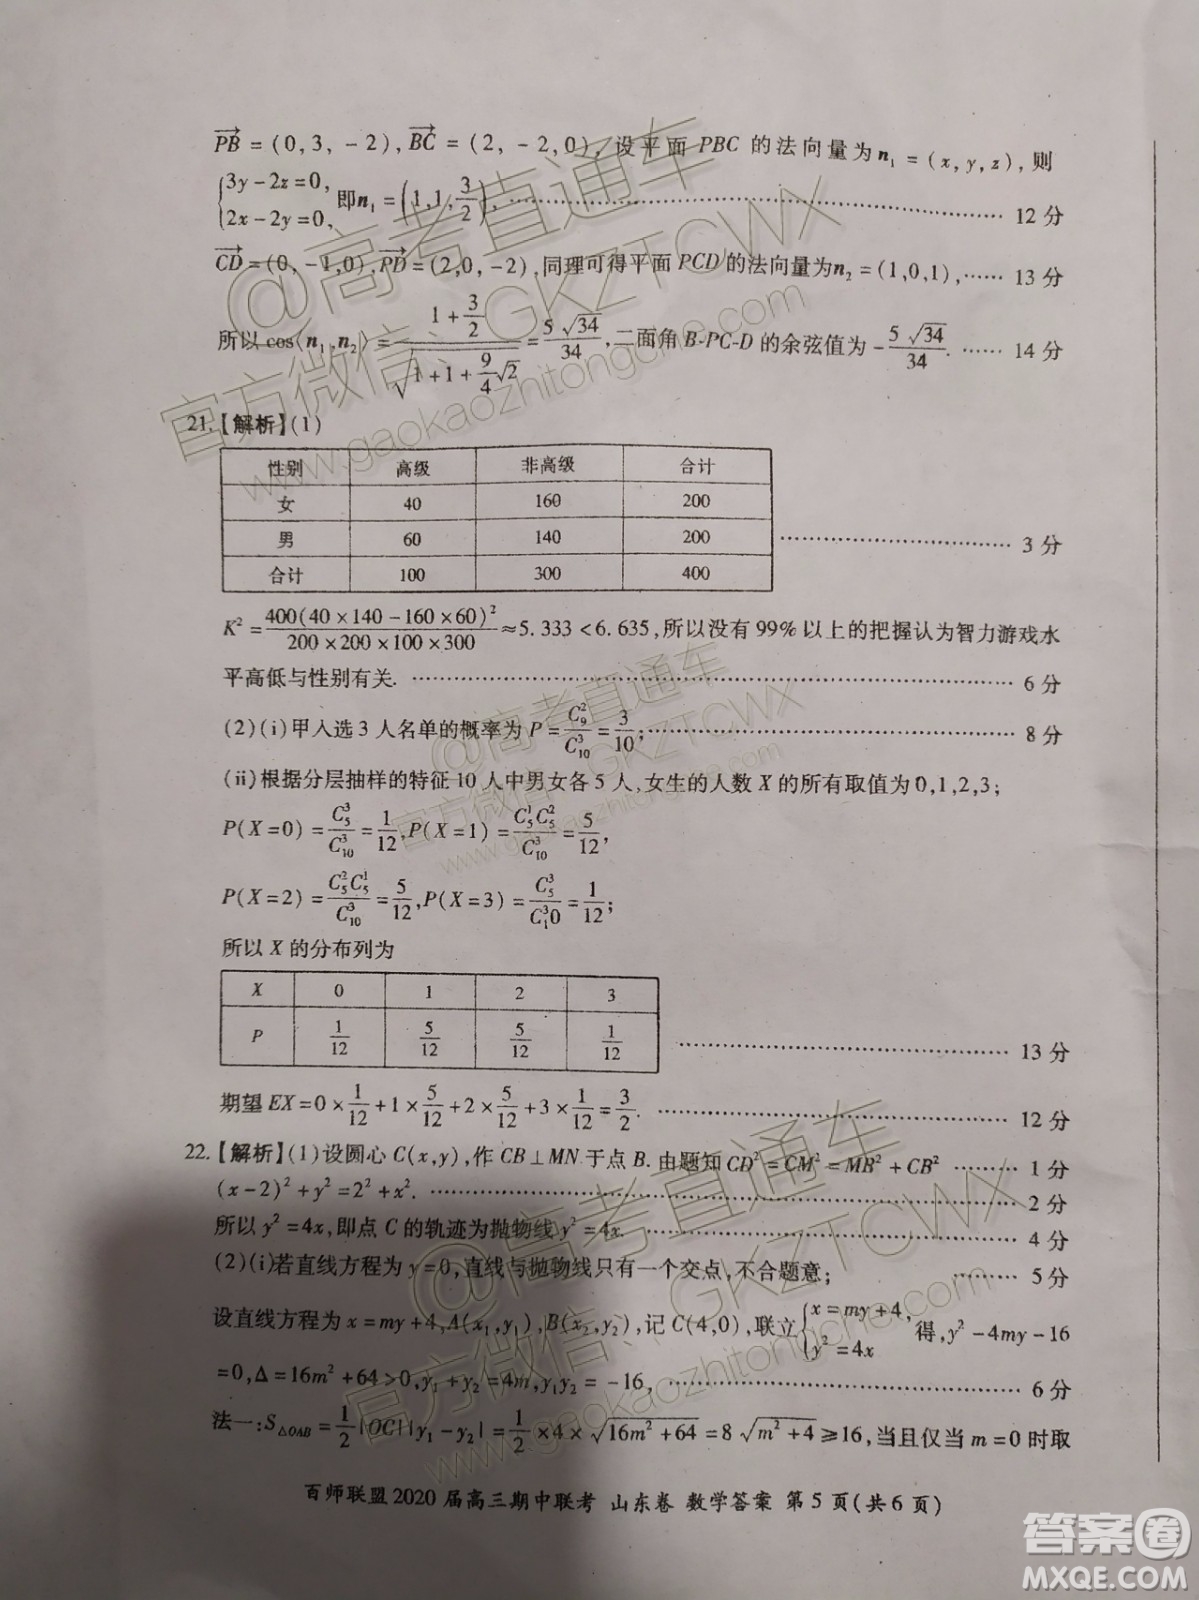 PB = (0, 3, -2), BC = (2, -2, 0), 设平面 PBC 的法向量为 n₁ = (x, y, z), 则
{3y-2z=0, 2x-2y=0, 即 n₁ = (1, 1, 3/2), …… 12 分
CD = (0, -1, 0), PD = (2, 0, -2), 同理可得平面 PCD 的法向量为 n₂ = (1, 0, 1), …… 13 分
所以 cos⟨n₁, n₂⟩ = (1+3/2)/√(1+1+9/4 √2) = 5√34/34, 二面角 B-PC-D 的余弦值为 -5√34/34. …… 14 分
21.【解析】(1)
性别 高级 非高级 合计
女 40 160 200
男 60 140 200
合计 100 300 400
…… 3 分
K² = 400(40×140-160×60)²/(200×200×100×300) ≈ 5.333 < 6.635, 所以没有 99% 以上的把握认为智力游戏水
平高低与性别有关. …… 6 分
(2)(i)甲入选 3 人名单的概率为 P = C₉²/C₁₀³ = 3/10; …… 8 分
(ii)根据分层抽样的特征 10 人中男女各 5 人, 女生的人数 X 的所有取值为 0,1,2,3;
P(X=0) = C₅³/C₁₀³ = 1/12, P(X=1) = C₅¹C₅²/C₁₀³ = 5/12,
P(X=2) = C₅²C₅¹/C₁₀³ = 5/12, P(X=3) = C₅³/C₁³0 = 1/12;
所以 X 的分布列为
X 0 1 2 3
P 1/12 5/12 5/12 1/12
…… 13 分
期望 EX = 0×1/12 + 1×5/12 + 2×5/12 + 3×1/12 = 3/2. …… 12 分
22.【解析】(1)设圆心 C(x,y), 作 CB⊥MN 于点 B. 由题知 CD² = CM² = MB² + CB² …… 1 分
(x-2)² + y² = 2² + x². …… 2 分
所以 y² = 4x, 即点 C 的轨迹为抛物线 y² = 4x. …… 4 分
(2)(i)若直线方程为 y=0, 直线与抛物线只有一个交点, 不合题意; …… 5 分
设直线方程为 x = my+4, A(x₁,y₁), B(x₂,y₂), 记 C(4,0), 联立{x = my+4, y² = 4x 得, y²-4my-16
=0, Δ = 16m²+64>0, y₁+y₂ = 4m, y₁y₂ = -16, …… 6 分
法一: S△OAB = 1/2|OC||y₁-y₂| = 1/2×4×√(16m²+64) = 8√(m²+4) ≥ 16, 当且仅当 m=0 时取
百师联盟 2020 届高三期中联考 山东卷 数学答案 第 5 页(共 6 页)
@高考直通车
官方微信:GKZTCWX
www.gaokaozhitongche.com
@高考直通车
官方微信:GKZTCWX
www.gaokaozhitongche.com
@高考直通车
官方微信:GKZTCWX
www.gaokaozhitongche.com
答案圈
MXQE.COM